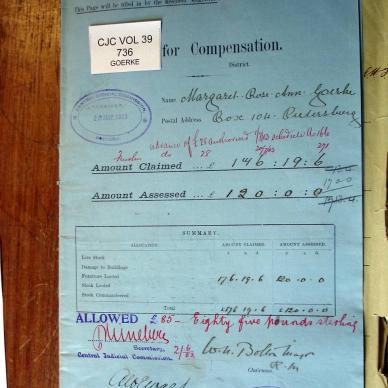 This Page will be filled in by the
CJC VOL 39
736
GOERKE
for Compensation.
District.
CENTRAL JUDICIAL COMMISSION
Name, Margaret Rose Ann Goerke
Postal Address Box 104 Pietersburg
advance of £25 authorised schedule
Further do 28
Amount Claimed ... £ 146 : 19 : 6
Amount Assessed ... £ 120 : 0 : 0
SUMMARY.
ALLOCATION. AMOUNT CLAIMED. AMOUNT ASSESSED.
Live Stock
Damage to Buildings
Furniture Looted 176 . 19 . 6 120 . 0 . 0
Stock Looted
Stock Commandeered
Total £176 . 19 . 6 £120 . 0 . 0
ALLOWED £85 - Eighty five pounds sterling
Secretary, 2/6/03
Central Judicial Commission
Chairman.
R.M.